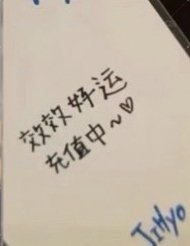 效效好运
充值中~♡
JiHyo